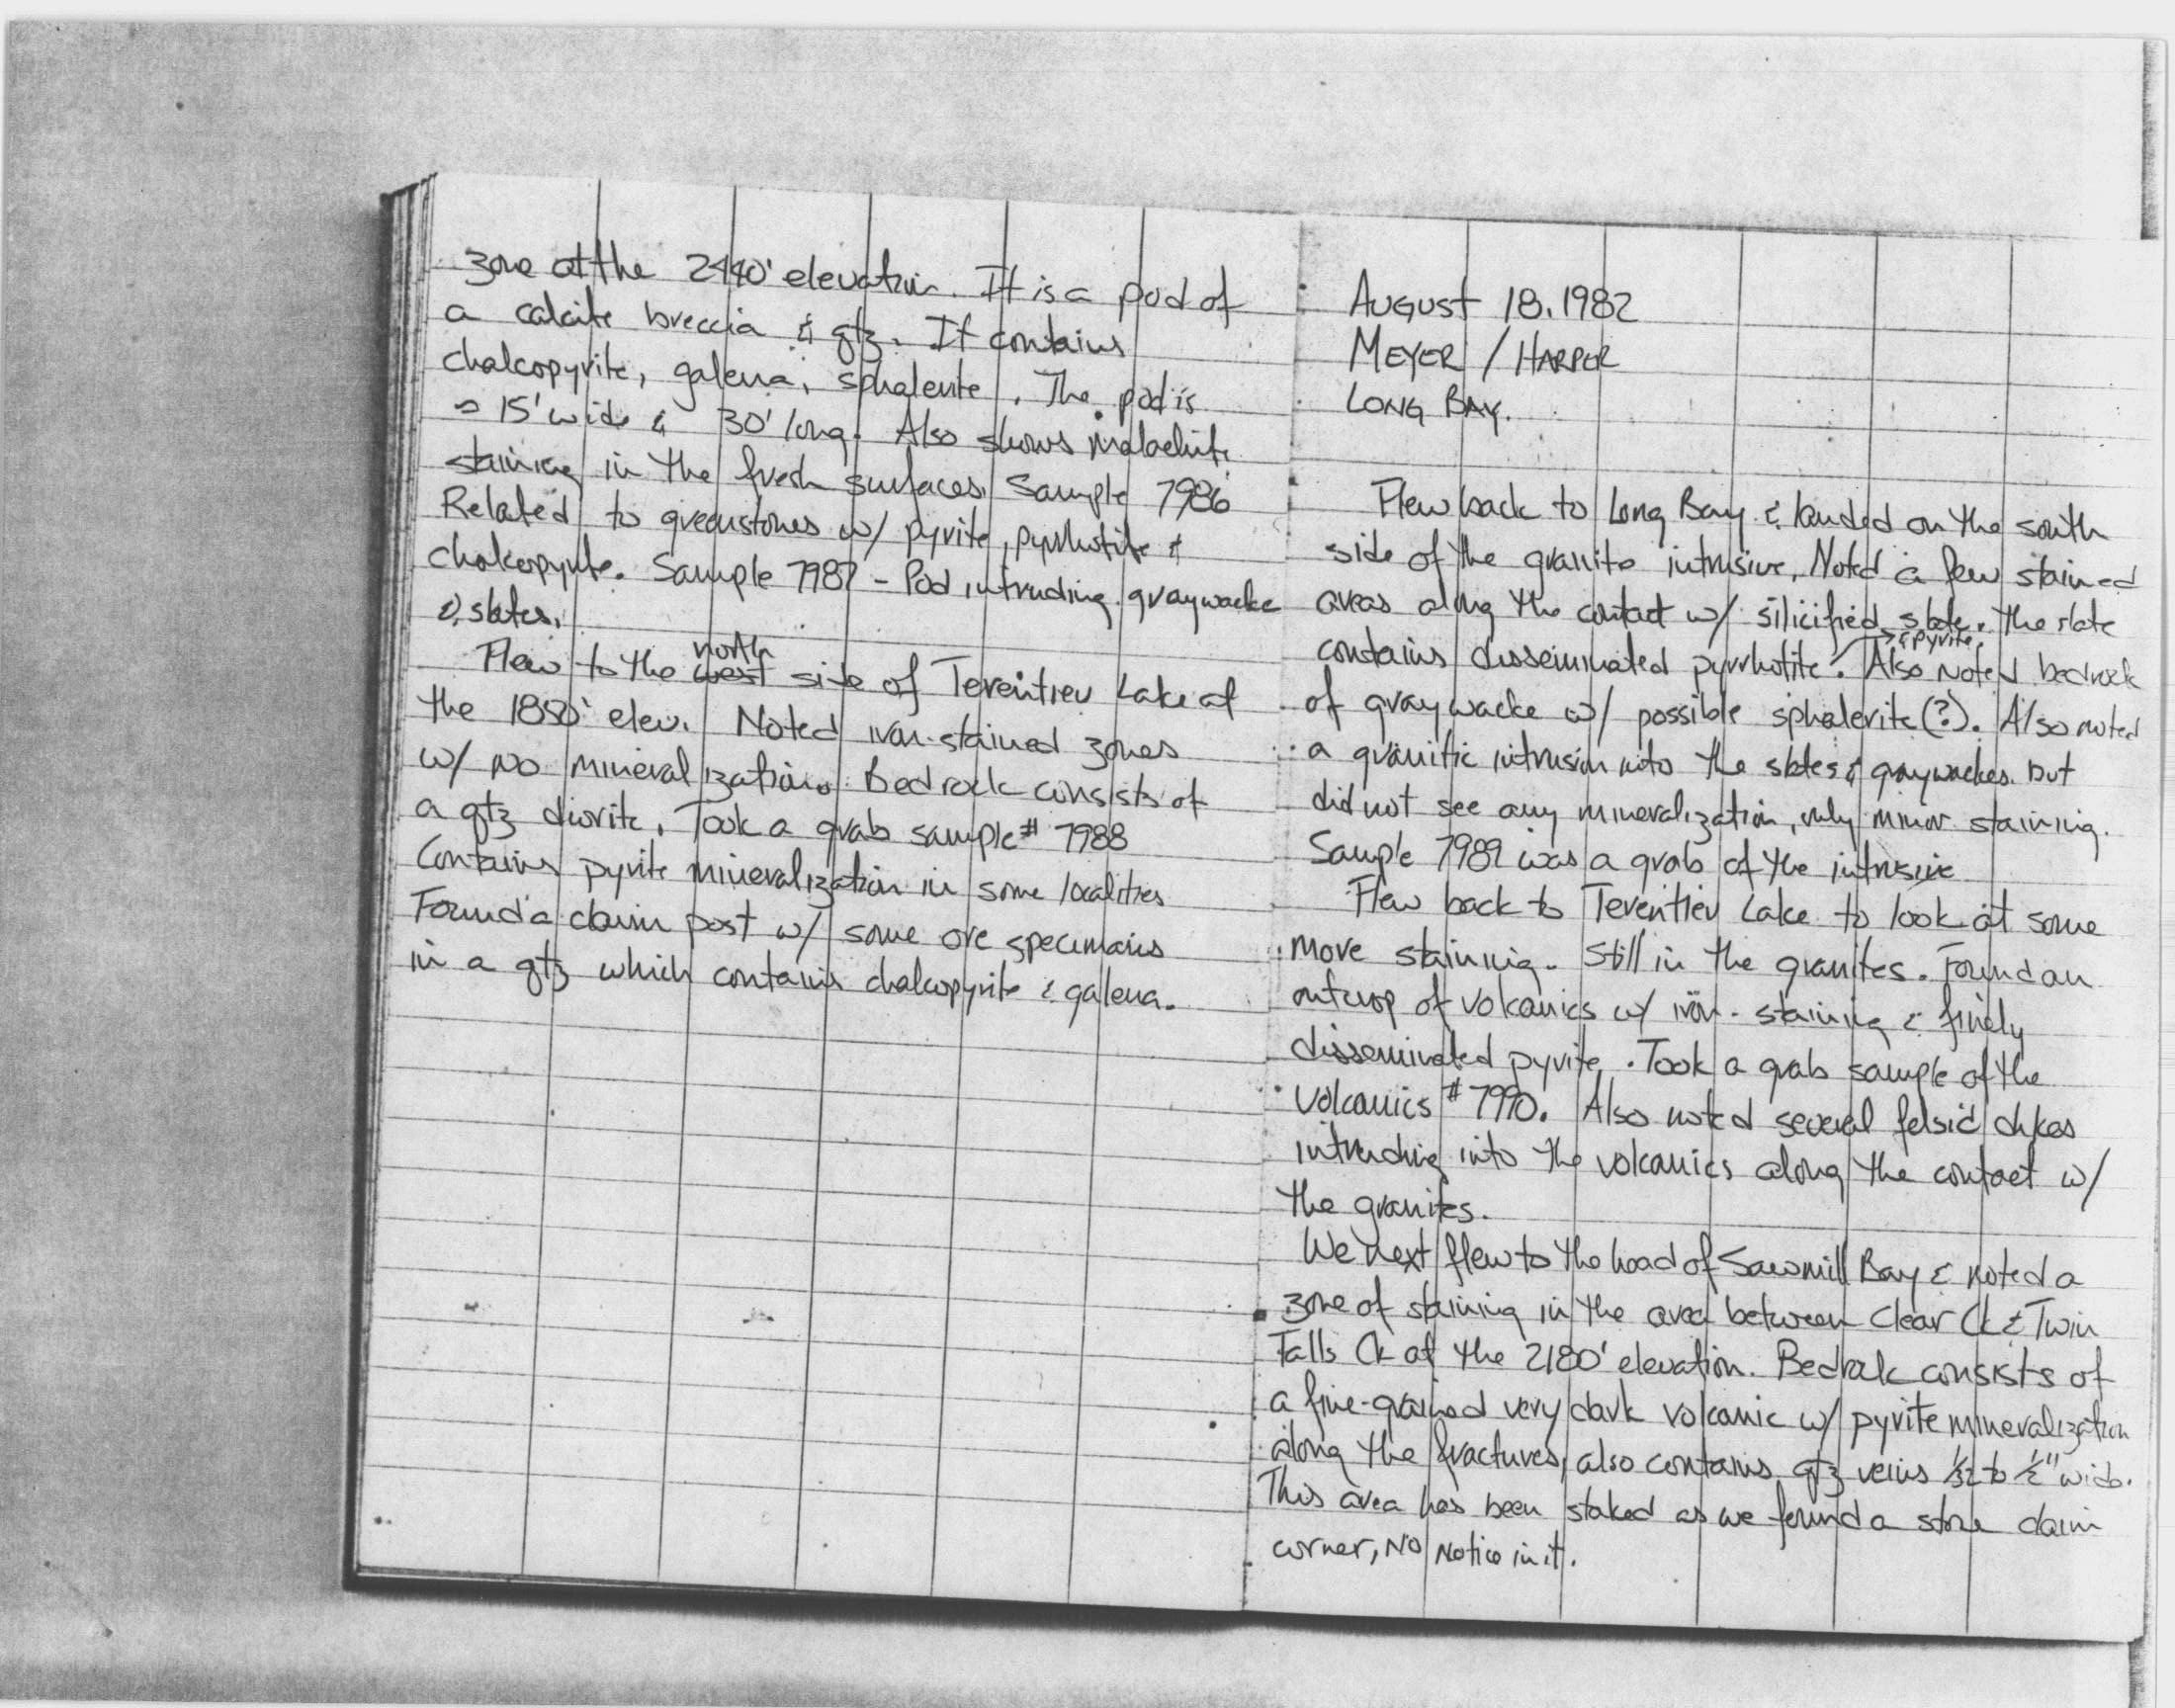 zone at the 2440' elevation. It is a pod of
a calcite breccia & qtz. It contains
chalcopyrite, galena, sphalerite. The pod is
≈ 15' wide & 30' long. Also shows malachite
staining in the fresh surfaces. Sample 7986
Related to greenstones w/ pyrite, pyrrhotite &
chalcopyrite. Sample 7987 - Pod intruding graywacke
& slates.
north
Flew to the west side of Terentiev Lake at
the 1850' elev. Noted iron-stained zones
w/ no mineralization. Bedrock consists of
a qtz diorite. Took a grab sample # 7988
Contains pyrite mineralization in some localities
Found a claim post w/ some ore specimans
in a qtz which contains chalcopyrite & galena.
AUGUST 18, 1982
MEYER / HARPER
LONG BAY.
Flew back to Long Bay & landed on the south
side of the granite intrusive, Noted a few stained
areas along the contact w/ silicified slate. The slate
& pyrite
contains disseminated pyrrhotite. Also noted bedrock
of graywacke w/ possible sphalerite (?). Also noted
a granitic intrusion into the slates & graywackes but
did not see any mineralization, only minor staining.
Sample 7989 was a grab of the intrusive
Flew back to Terentiev Lake to look at some
more staining. Still in the granites. Found an
outcrop of volcanics w/ iron-staining & finely
disseminated pyrite. Took a grab sample of the
volcanics # 7990. Also noted several felsic dikes
intruding into the volcanics along the contact w/
the granites.
We next flew to the head of Sawmill Bay & noted a
zone of staining in the area between Clear Ck & Twin
Falls Ck at the 2180' elevation. Bedrock consists of
a fine-grained very dark volcanic w/ pyrite mineralization
along the fractures, also contains qtz veins 1/32 to 1/2" wide.
This area has been staked as we found a stone claim
corner, No Notice in it.